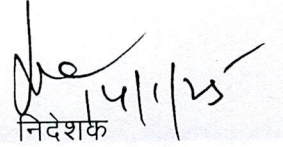 14/1/25
निदेशक